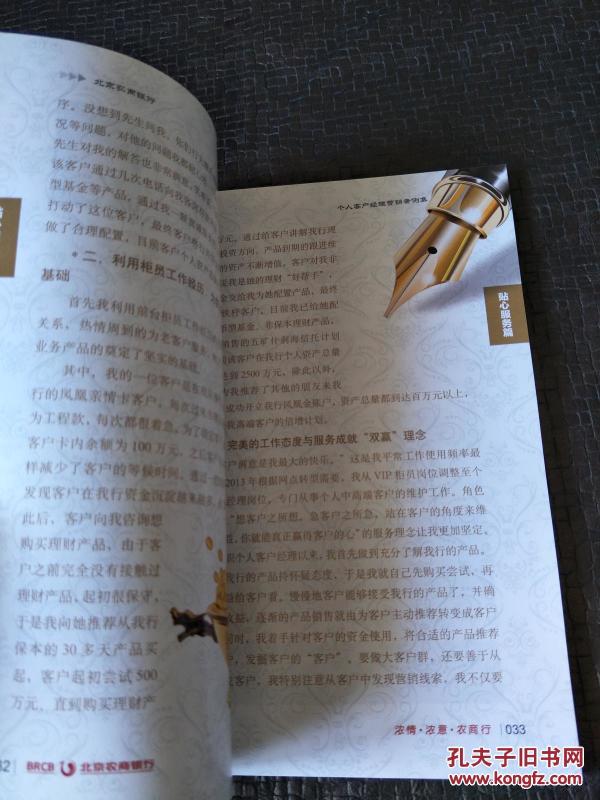 北京农商银行
序。没想到先生问我，你们行
况等问题，对他的问题我都
先生对我的解答也非常满意
该客户通过几次电话向我
型基金等产品。通过我
打动了这位客户，最终客户
做了合理配置，目前客户个人
二、利用柜员工作经历
基础
首先我利用前台柜员工作
关系，热情周到的为老客户服务
业务产品的奠定了坚实的基础。
其中，我的一位客户是
行的凤凰亲情卡客户，每次过来
为工程款，每次都很着急。为了
客户卡内余额为100万元，之后
样减少了客户的等候时间。通过
发现客户在我行资金沉淀越来越
此后，客户向我咨询想
购买理财产品，由于客
户之前完全没有接触过
理财产品，起初很保守，
于是我向她推荐从我行
保本的30多天产品买
起，客户起初尝试500
万元，直到购买理财产
32 BRCB 北京农商银行
个人客户经理营销案例集
万元。通过给客户讲解我行现
投资方向、产品到期的跟进维
的资产不断增值。客户对我非
是我是她的理财“好帮手”，
金交给我为她配置产品，最终
铁杆客户。目前我已给她配
币型基金、非保本理财产品、
销售的五矿什刹海信托计划
该客户在我行个人资产总量
达到2500万元。除此以外，
为我推荐了其他的朋友来我
成功开立我行凤凰金账户，资产总量都到达百万元以上，
我高端客户的倍增计划。
完美的工作态度与服务成就“双赢”理念
户满意是我最大的快乐。”这是我平常工作使用频率最
2013年根据网点转型需要，我从VIP柜员岗位调整至个
经理岗位，专门从事个人中高端客户的维护工作。角色
“想客户之所想，急客户之所急，站在客户的角度来维
益，你就能真正赢得客户的心”的服务理念让我更加坚定。
职个人客户经理以来，我首先做到充分了解我行的产品。
我行的产品持怀疑态度，于是我就自己先购买尝试，再
益给客户看，慢慢地客户能够接受我行的产品了，并确
收益，逐渐的产品销售就由为客户主动推荐转变成客户
同时，我着手针对客户的资金使用，将合适的产品推荐
户，发掘客户的“客户”。要做大客户群，还要善于从
发客户，我特别注意从客户中发现营销线索。我不仅要
贴心服务篇
浓情·浓意·农商行 033
孔夫子旧书网
www.kongfz.com